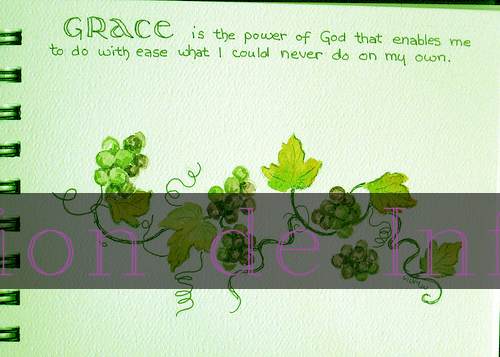 GRACE is the power of God that enables me
to do with ease what I could never do on my own.
ion de In